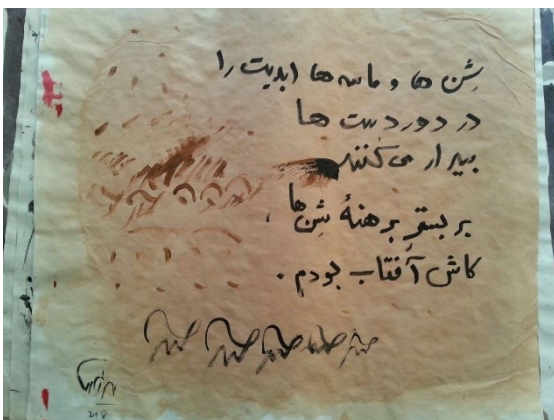 شِن ها و ماسه ها ابدیت را
در دوردست ها
بیدار می کنند
بر بسترِ برهنهٔ شِن ها،
کاش آفتاب بودم.